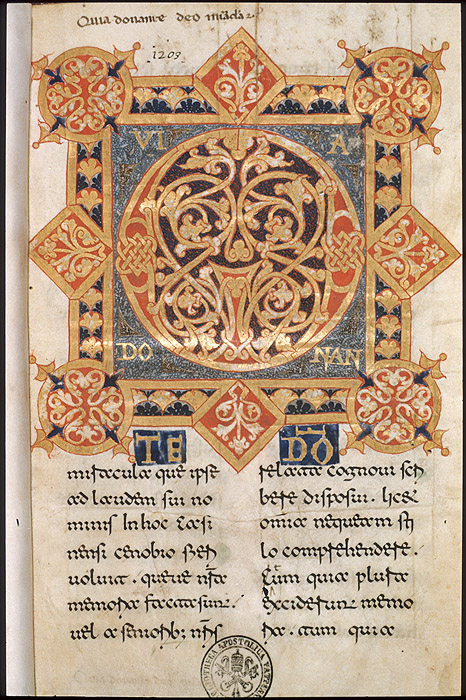 Quia donante deo miracla
1203
VI A
DO NAN
TE DO
miracula que ipse
ad laudem sui no
minis In hoc casi
nensi cenobio fieri
voluit. queve nr̄e
memorie
vel a seniorib; nr̄is
relata cognovi scri
bere disposui. licet
omia nequeam sti
lo comprehendere.
Cum quia plura
exciderunt memo
rie. tum quia
BIBLIOTHECA APOSTOLICA VATICANA